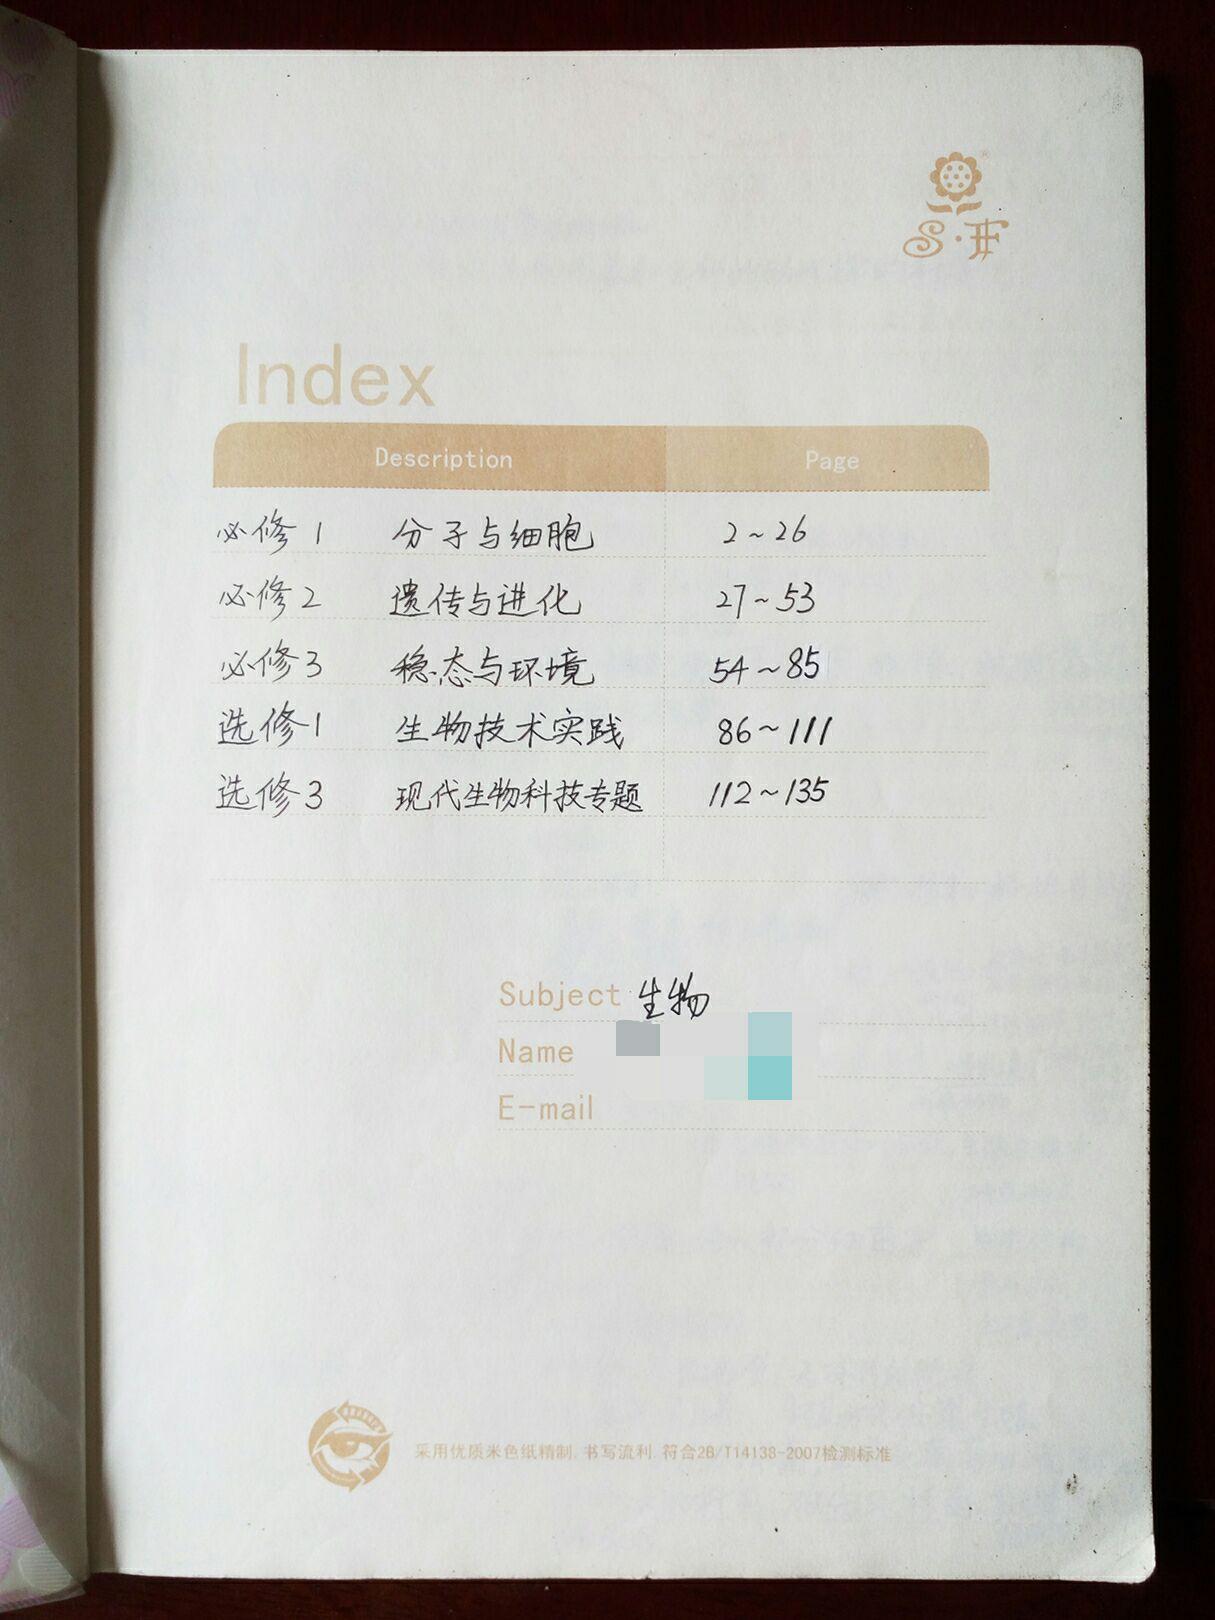 S·F
Index
Description Page
必修1 分子与细胞 2~26
必修2 遗传与进化 27~53
必修3 稳态与环境 54~85
选修1 生物技术实践 86~111
选修3 现代生物科技专题 112~135
Subject 生物
Name
E-mail
采用优质米色纸精制，书写流利 符合2B/T14138-2007检测标准